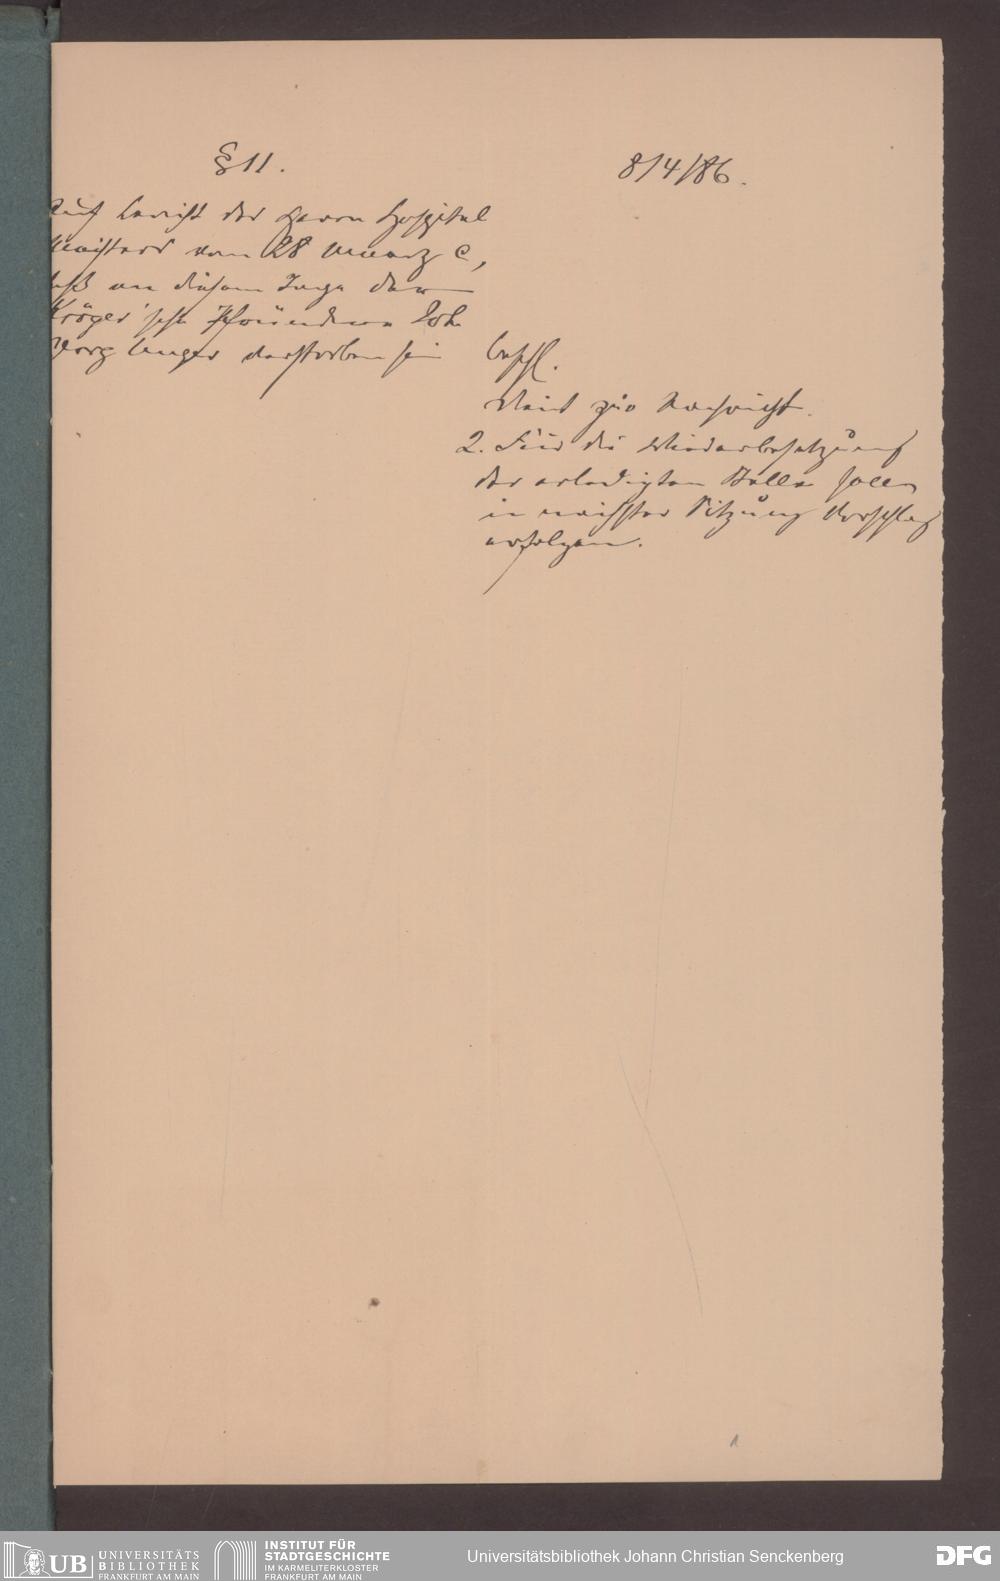 § 11.
8/4/86.
Auf Bericht des Herrn Hospital
Meisters vom 28 Maerz c,
daß an diesem Tage der
Kröger'sche Pfründner Joh.
Georg Unger verstorben sei
Beschl.
dient zur Nachricht.
2. Für die Wiederbesetzung
der erledigten Stelle solle
in nächster Sitzung Vorschlag
erfolgen.
UB UNIVERSITÄTS
BIBLIOTHEK
FRANKFURT AM MAIN
INSTITUT FÜR
STADTGESCHICHTE
IM KARMELITERKLOSTER
FRANKFURT AM MAIN
Universitätsbibliothek Johann Christian Senckenberg
DFG